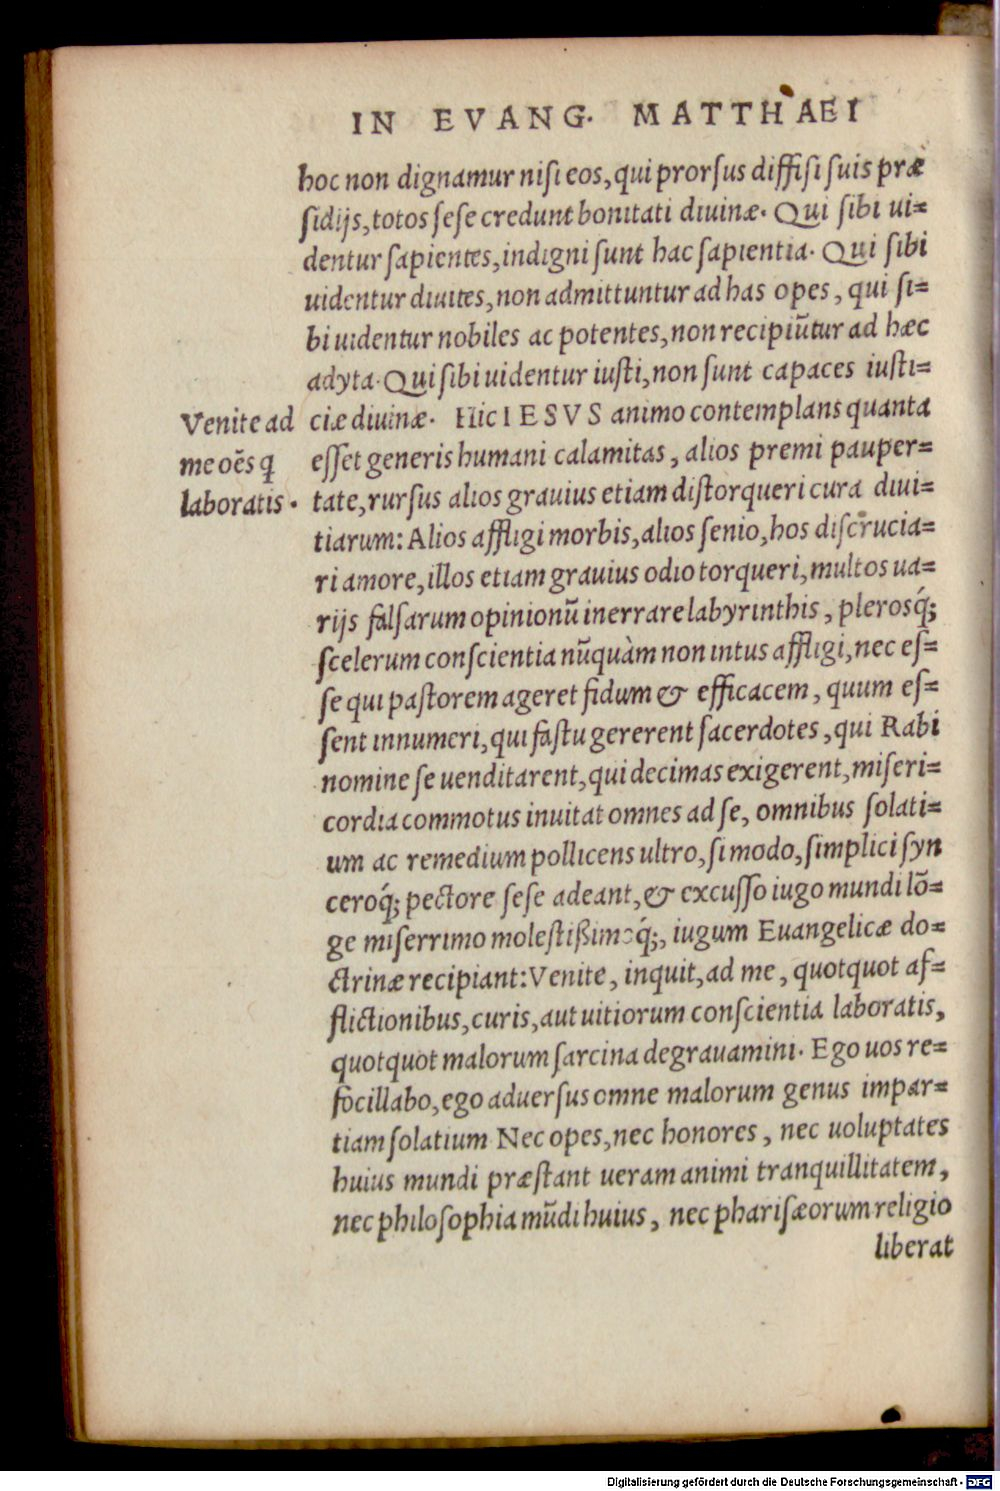 IN EVANG. MATTHAEI
hoc non dignamur nisi eos, qui prorsus diffisi suis præ
sidijs, totos sese credunt bonitati diuinæ. Qui sibi ui=
dentur sapientes, indigni sunt hac sapientia. Qui sibi
uidentur diuites, non admittuntur ad has opes, qui si=
bi uidentur nobiles ac potentes, non recipiũtur ad hæc
adyta. Qui sibi uidentur iusti, non sunt capaces iusti=
Venite ad
me oẽs q̃
laboratis.
ciæ diuinæ. Hic IESVS animo contemplans quanta
esset generis humani calamitas, alios premi pauper=
tate, rursus alios grauius etiam distorqueri cura diui=
tiarum: Alios affligi morbis, alios senio, hos discrucia=
ri amore, illos etiam grauius odio torqueri, multos ua=
rijs falsarum opinionũ inerrare labyrinthis, plerosq́;
scelerum conscientia nũquàm non intus affligi, nec es=
se qui pastorem ageret fidum & efficacem, quum es=
sent innumeri, qui fastu gererent sacerdotes, qui Rabi
nomine se uenditarent, qui decimas exigerent, miseri=
cordia commotus inuitat omnes ad se, omnibus solati=
um ac remedium pollicens ultro, si modo, simplici syn
ceroq́; pectore sese adeant, & excusso iugo mundi lõ=
ge miserrimo molestißimoq́;, iugum Euangelicæ do=
ctrinæ recipiant: Venite, inquit, ad me, quotquot af=
flictionibus, curis, aut uitiorum conscientia laboratis,
quotquot malorum sarcina degrauamini. Ego uos re=
focillabo, ego aduersus omne malorum genus impar=
tiam solatium Nec opes, nec honores, nec uoluptates
huius mundi præstant ueram animi tranquillitatem,
nec philosophia mũdi huius, nec pharisæorum religio
liberat
Digitalisierung gefördert durch die Deutsche Forschungsgemeinschaft - DFG